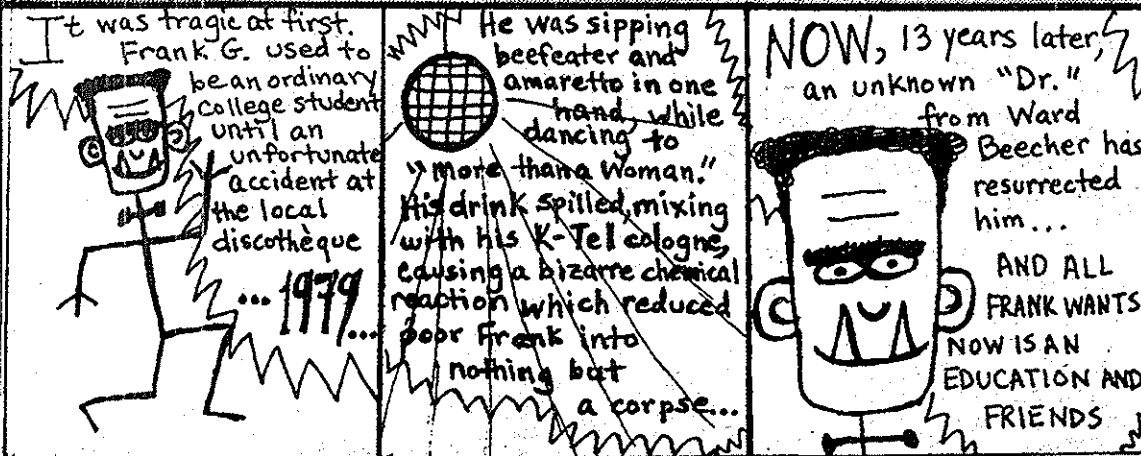 It was tragic at first.
Frank G. used to
be an ordinary
college student
until an
unfortunate
accident at
the local
discothèque
...1979...
He was sipping
beefeater and
amaretto in one
hand, while
dancing to
"more than a Woman."
His drink spilled, mixing
with his K-Tel cologne,
causing a bizarre chemical
reaction which reduced
poor Frank into
nothing but
a corpse...
NOW, 13 years later,
an unknown "Dr."
from Ward
Beecher has
resurrected
him...
AND ALL
FRANK WANTS
NOW IS AN
EDUCATION AND
FRIENDS